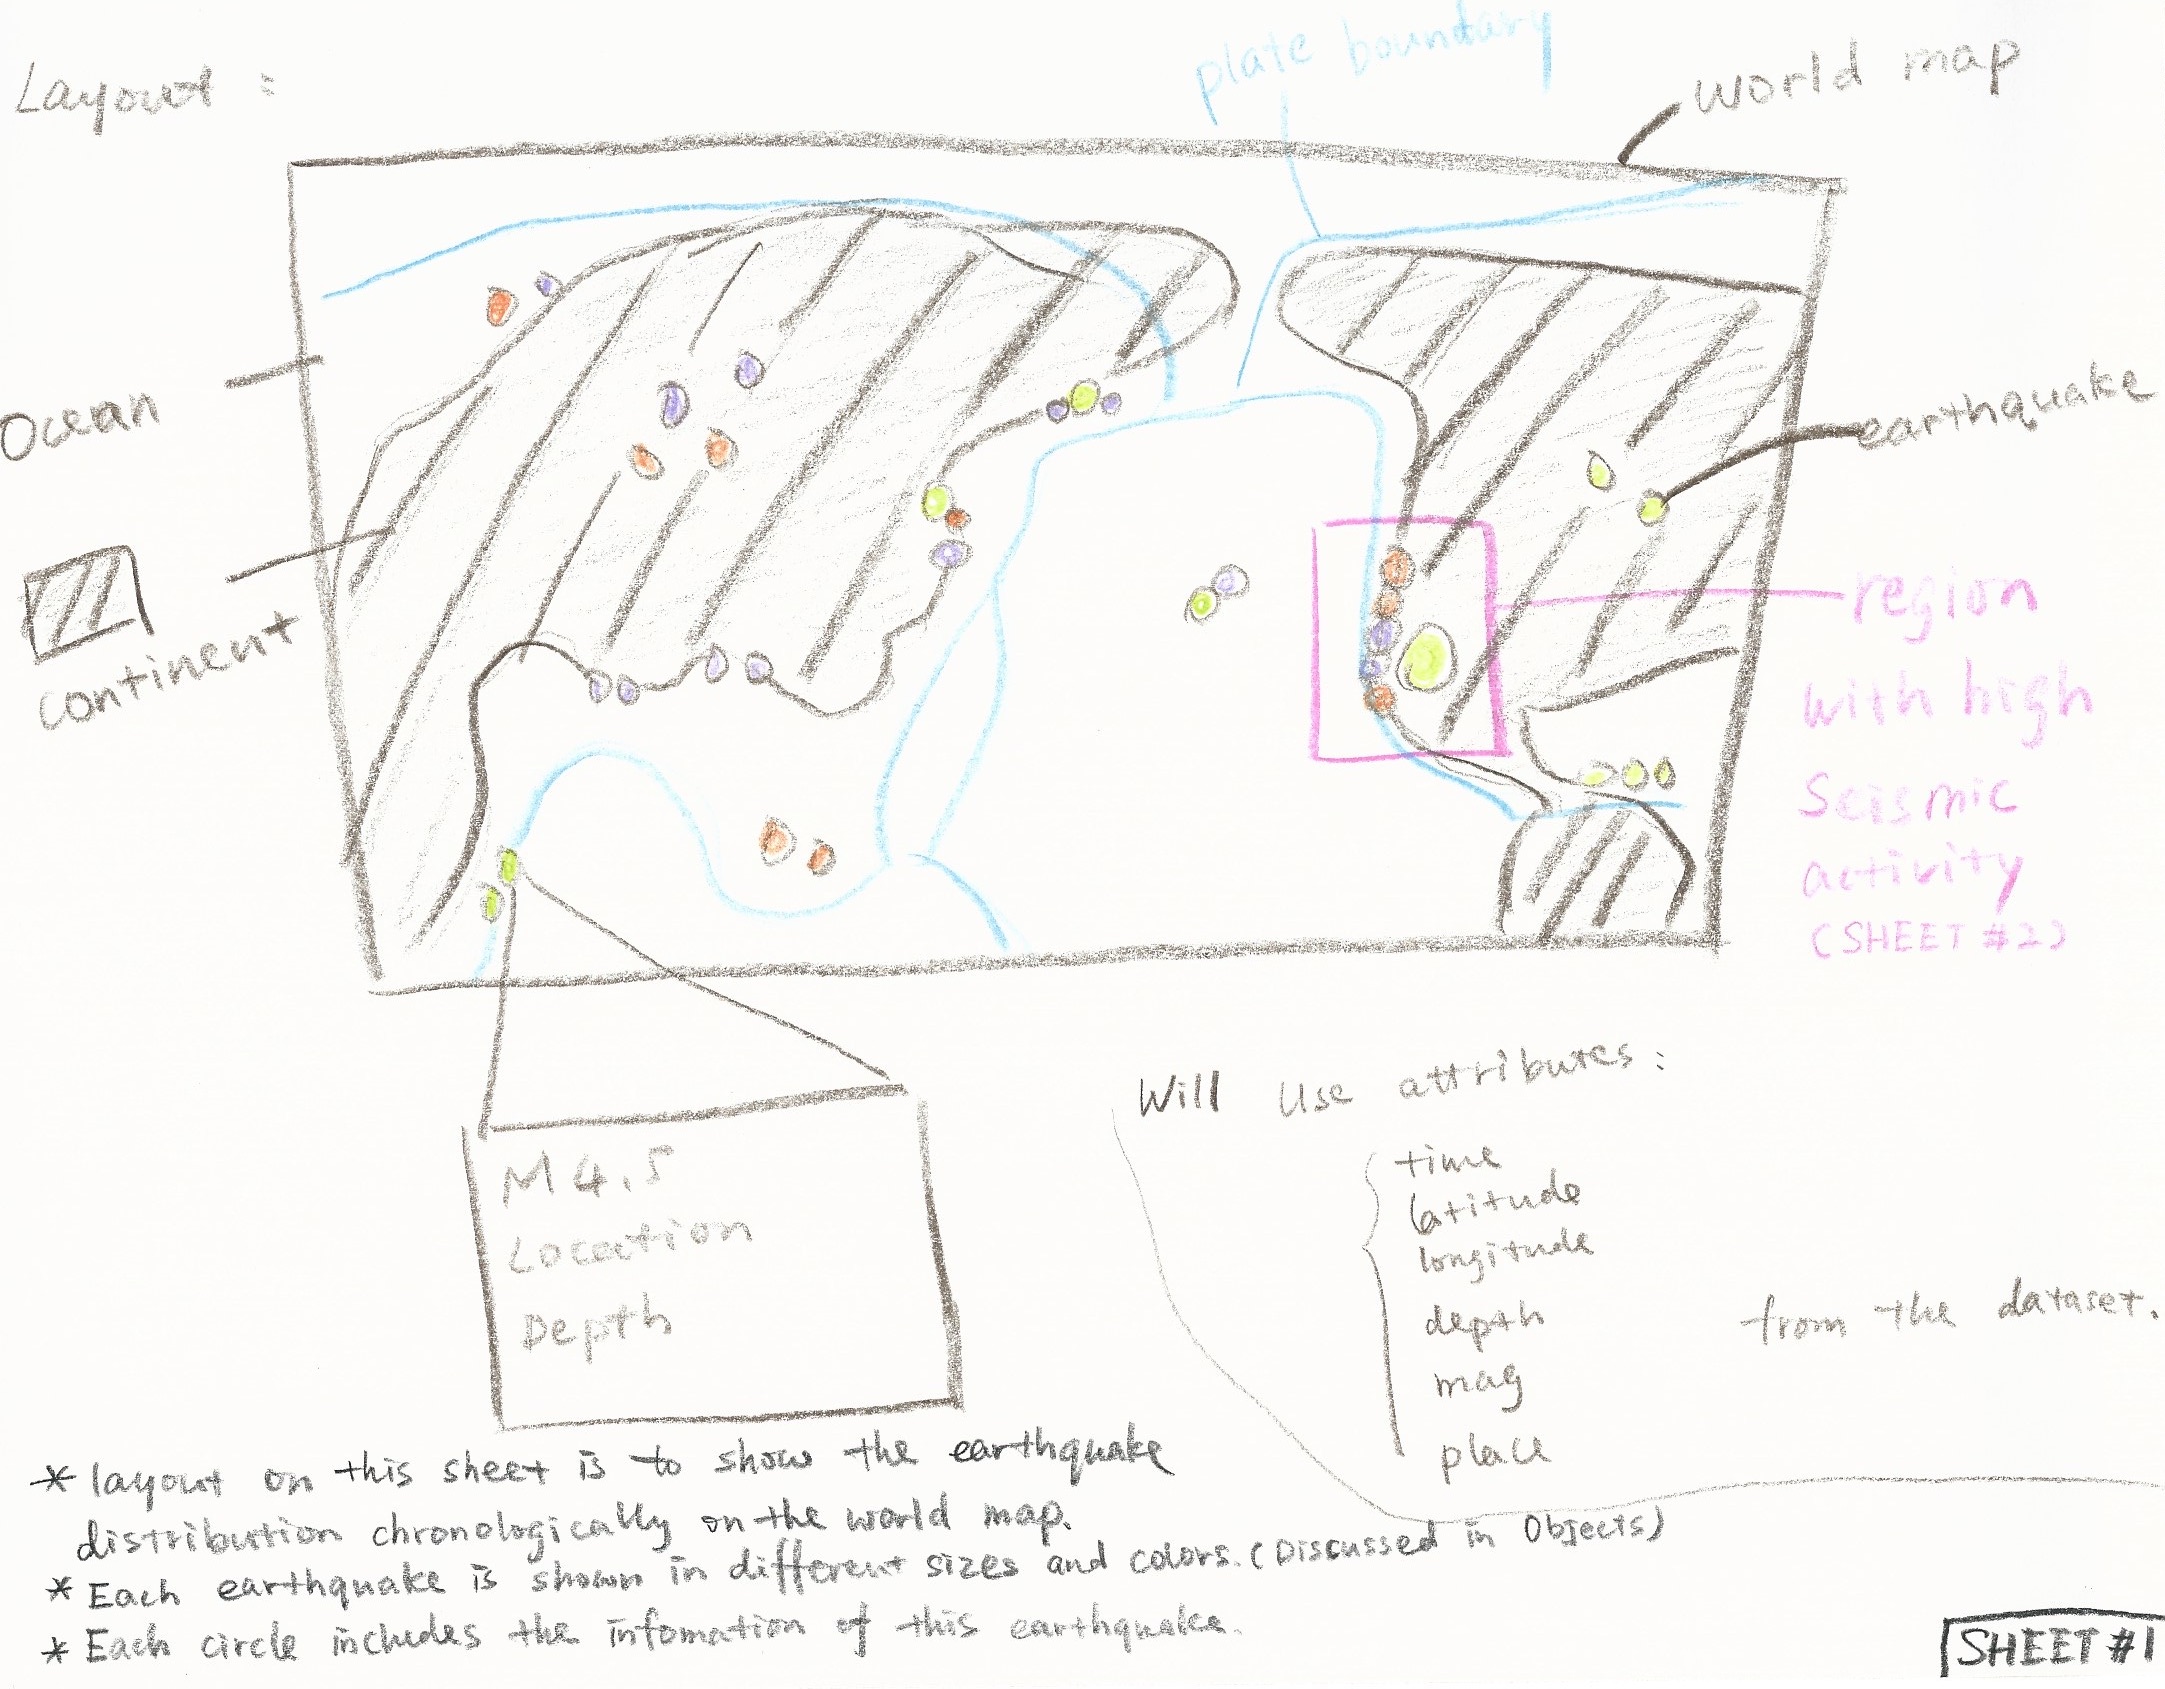 Layout :
plate boundary
world map
Ocean
earthquake
continent
region
with high
seismic
activity
(SHEET #2)
M 4.5
Location
Depth
Will use attributes :
time
latitude
longitude
depth
mag
place
from the dataset.
* layout on this sheet is to show the earthquake
distribution chronologically on the world map.
* Each earthquake is shown in different sizes and colors. (Discussed in Objects)
* Each circle includes the infomation of this earthquake.
SHEET #1